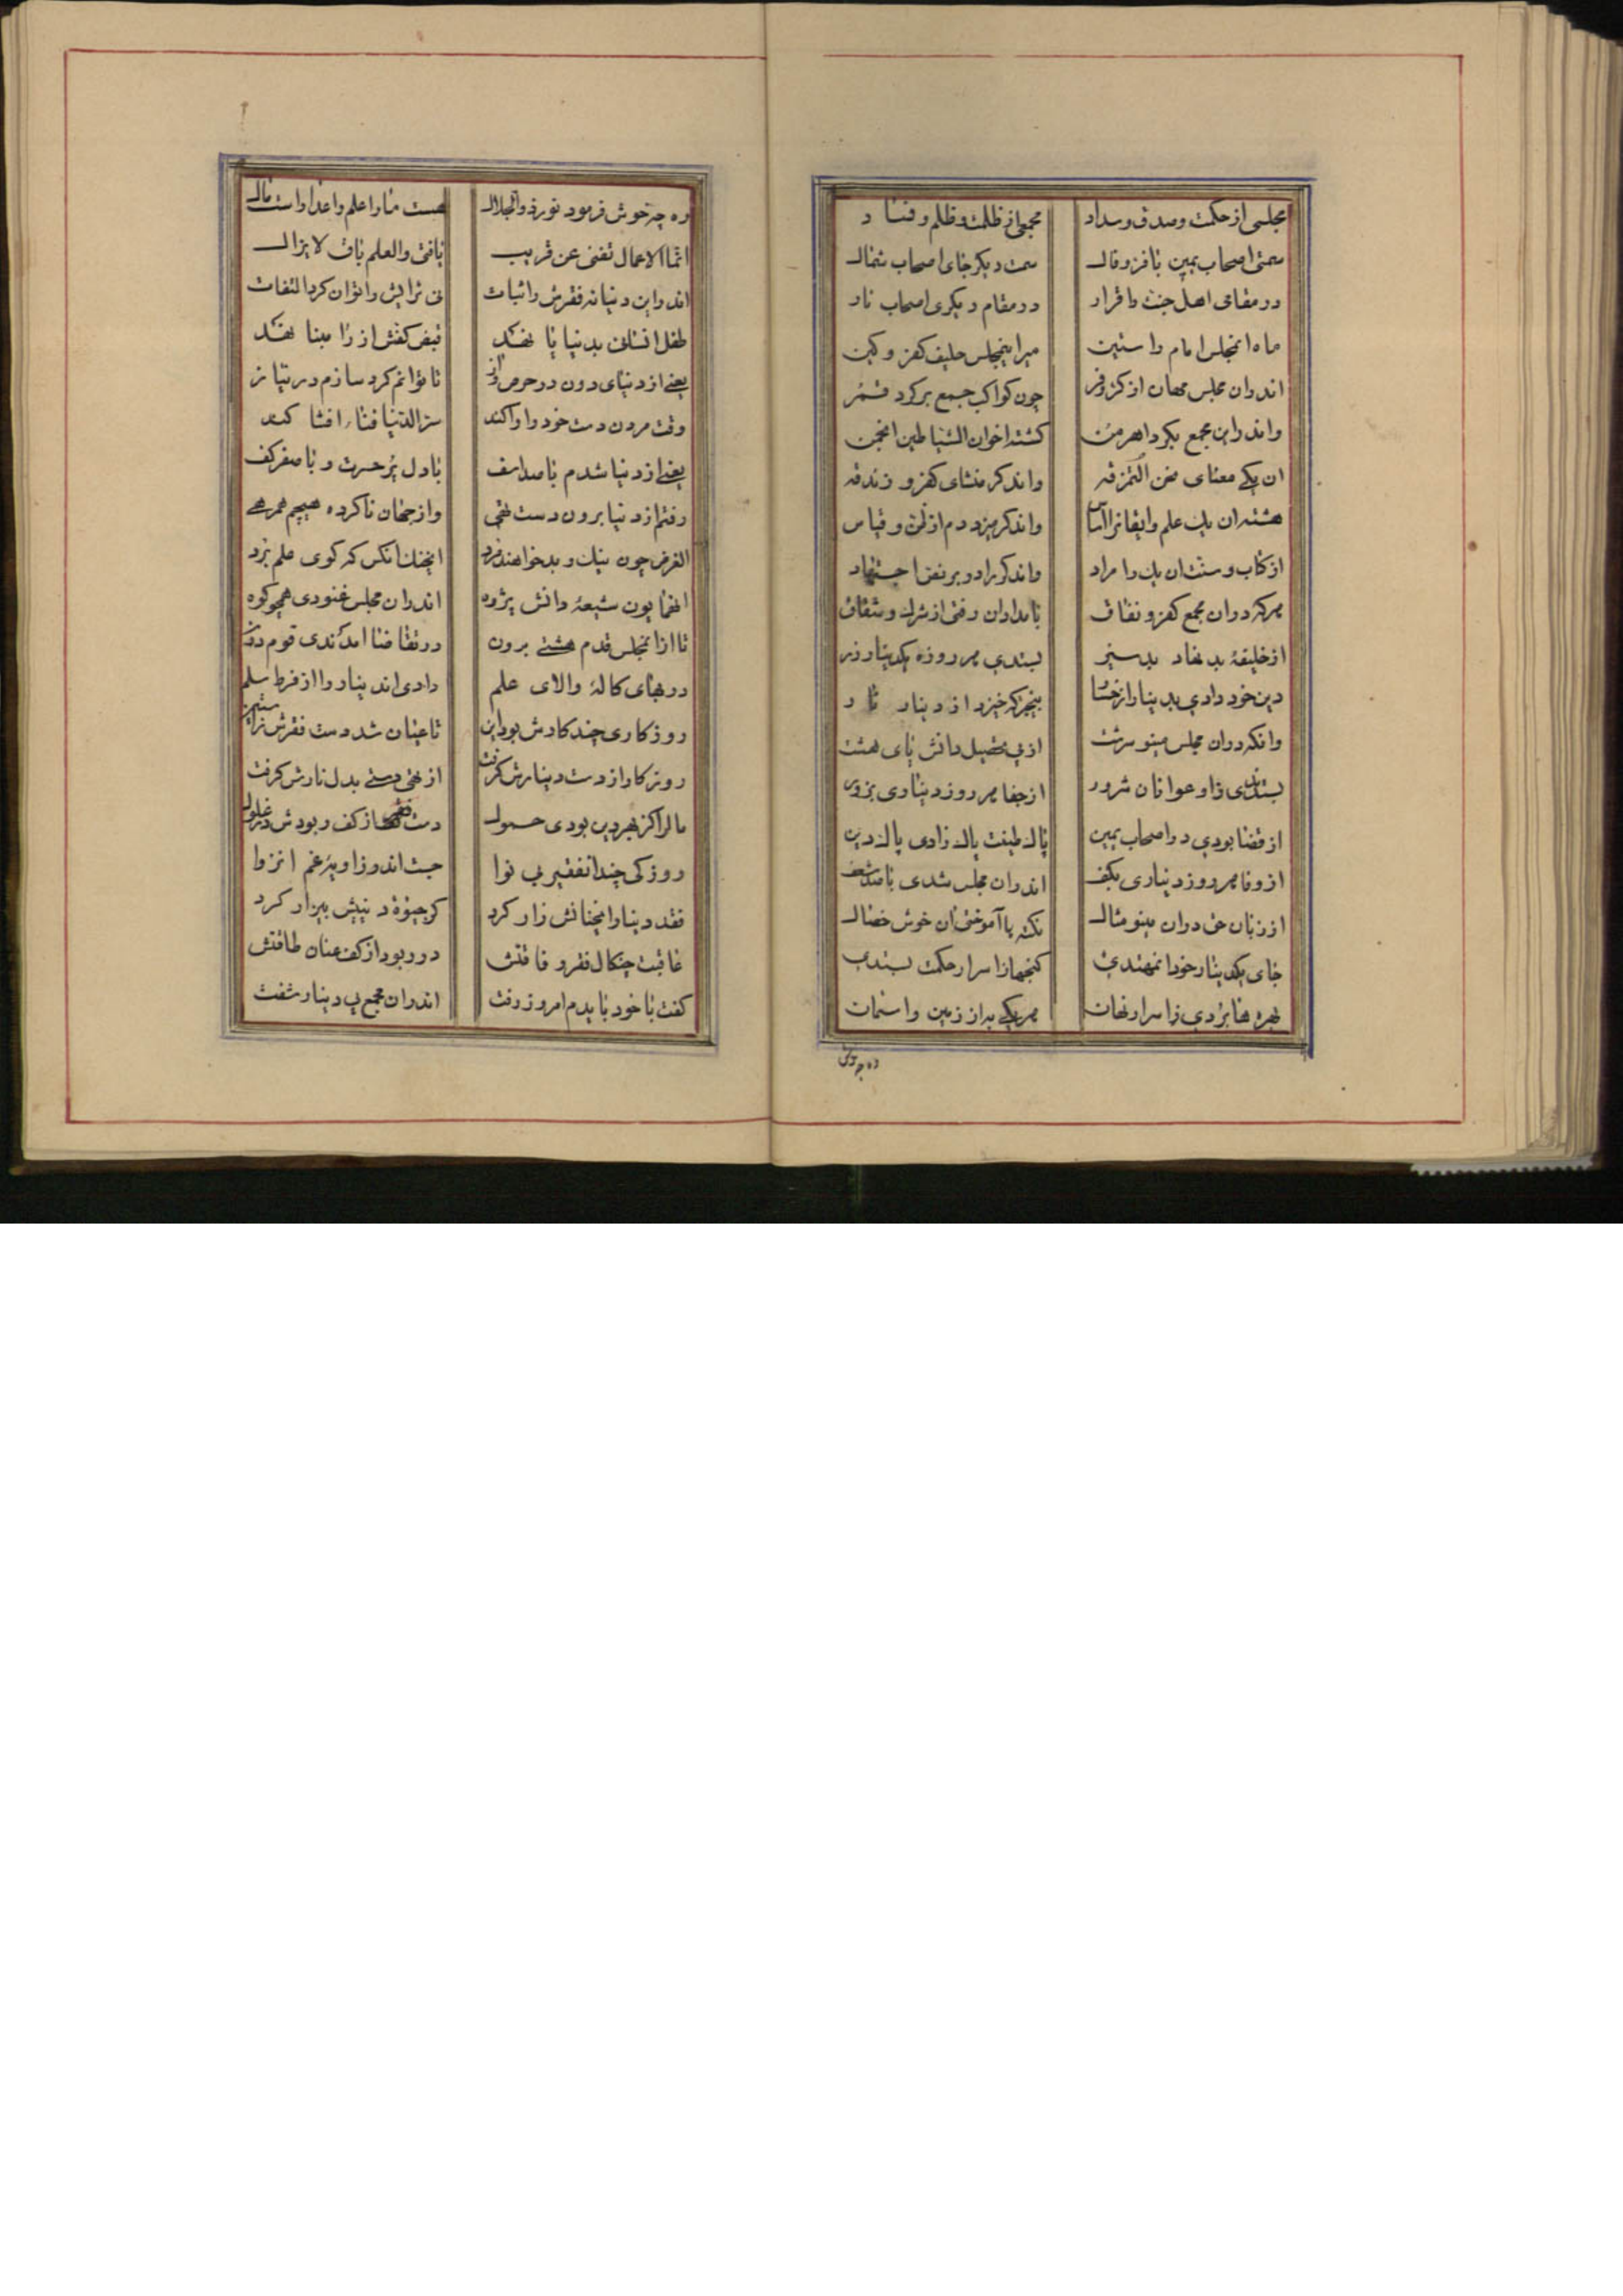 مجلسی از حکمت و صدق و سداد
مجمعی از ظلمت و ظلم و فساد
سمتی اصحاب یمین با فر و فال
سمت دیکر جای اصحاب شمال
در مقامی اهل جنت را قرار
در مقام دیکری اصحاب نار
ماه انمجلس امام راستین
میر اینمجلس حلیف کفر و کین
اندران مجلس مهان از کر و فر
چون کواکب جمع بر کرد قمر
واندر این مجمع بکرد اهرمن
کشته اخوان الشیاطین انجمن
ان یکی معنای
واندکر منشای کفر و زندقه
هشته ان یک علم وایقانرا اساس
واندکر میزد دم از ظن و قیاس
از کتاب و سنت ان یک را مراد
واندکر را دو بر نفس اجتهاد
هر که در ان مجمع کفر و نفاق
بامدادان رفتی از شرک و شقاق
از خلیفهٔ بد نهاد بد سیر
بستدی هر روزه یکدینار زر
دین خود دادی بدینار از خسار
بیخبر که خیزد از دینار نار
وانکه در ان مجلس مینو سرشت
از پی تحصیل دانش پای هشت
بستندی زاو عوانان شرور
از جفا هر روز دیناری بزور
از قضا بودی در اصحاب یمین
پاک طینت پاک زادی پاک دین
از وفا هر روز دیناری بکف
اندران مجلس شدی با صد شعف
از زبان حق در ان مینو مثال
نکته ها آموختی ان خوش خصال
جای یکدینار خود انمهتدی
کنجها از اسرار حکمت بستدی
بهره ها بردی ز اسرار نهان
هر یکی به از زمین و اسمان
وه چه خوش
وه چه خوش فرمود نور ذوالجلال
هست ما را علم و اعدا راست مال
انما الاعمال تفنی عن قریب
باقی والعلم باق لا یزال
اندر این دنیا نه فقرش را ثبات
نی ثرایش را توان کرد التفات
طفل انسان بدنیا پا نهد
قبض کفش از
یعنی از دنیای دون در حرص و از
تا توانم کرد سازم در نیاز
وقت مردن دست خود را وا کند
سر الدنیا فناء افشا کند
یعنی از دنیا شدم با صد اسف
با دل پر حسرت و با صفر کف
رفتم از دنیا برون دست تهی
واز جهان ناکرده هیچم همرهی
الغرض چون نیک و بد خواهند مرد
ایخنک انکس که کوی علم برد
الهمایون شیعهٔ دانش پژوه
اندران مجلس غنودی همچو کوه
تا از انمجلس قدم هشتی برون
در تقاضا امدندی قوم دون
در بهای کالهٔ والای علم
دادی اندینار را از فرط سلم
روزکاری چند کارش بود این
تا عیان شد دست فقرش ز استین
روزکار از دست دینارش کرفت
از تهی دستی بدل نارش کرفت
مال اکر بهر دین بودی حمول
دست فقر از کف ربودش در غلول
روزکی چند انفقیر بی نوا
جست اندر زاویهٔ غم انزوا
فقد دینار انچنانش زار کرد
کز حیوة دنییش بیزار کرد
عاقبت چنکال فقر و فاقتش
در ربود از کف عنان طاقتش
کفت با خود بایدم امروز رفت
اندران مجمع بی دینار تفت